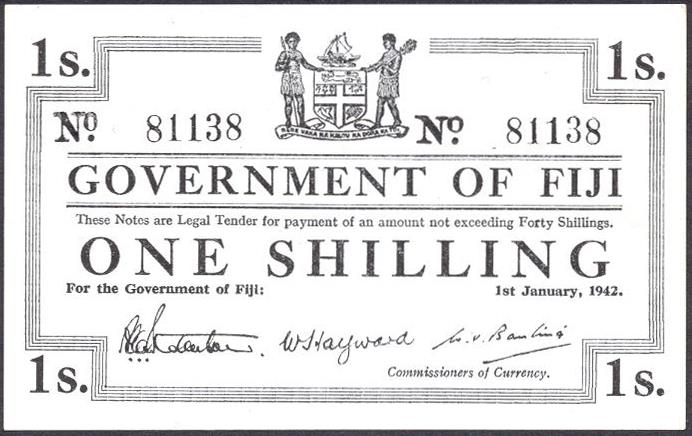 1s. 1s.
RERE VAKA NA KALOU KA DOKA NA TUI
Nº 81138 Nº 81138
GOVERNMENT OF FIJI
These Notes are Legal Tender for payment of an amount not exceeding Forty Shillings.
ONE SHILLING
For the Government of Fiji: 1st January, 1942.
W S Hayward
Commissioners of Currency.
1s. 1s.